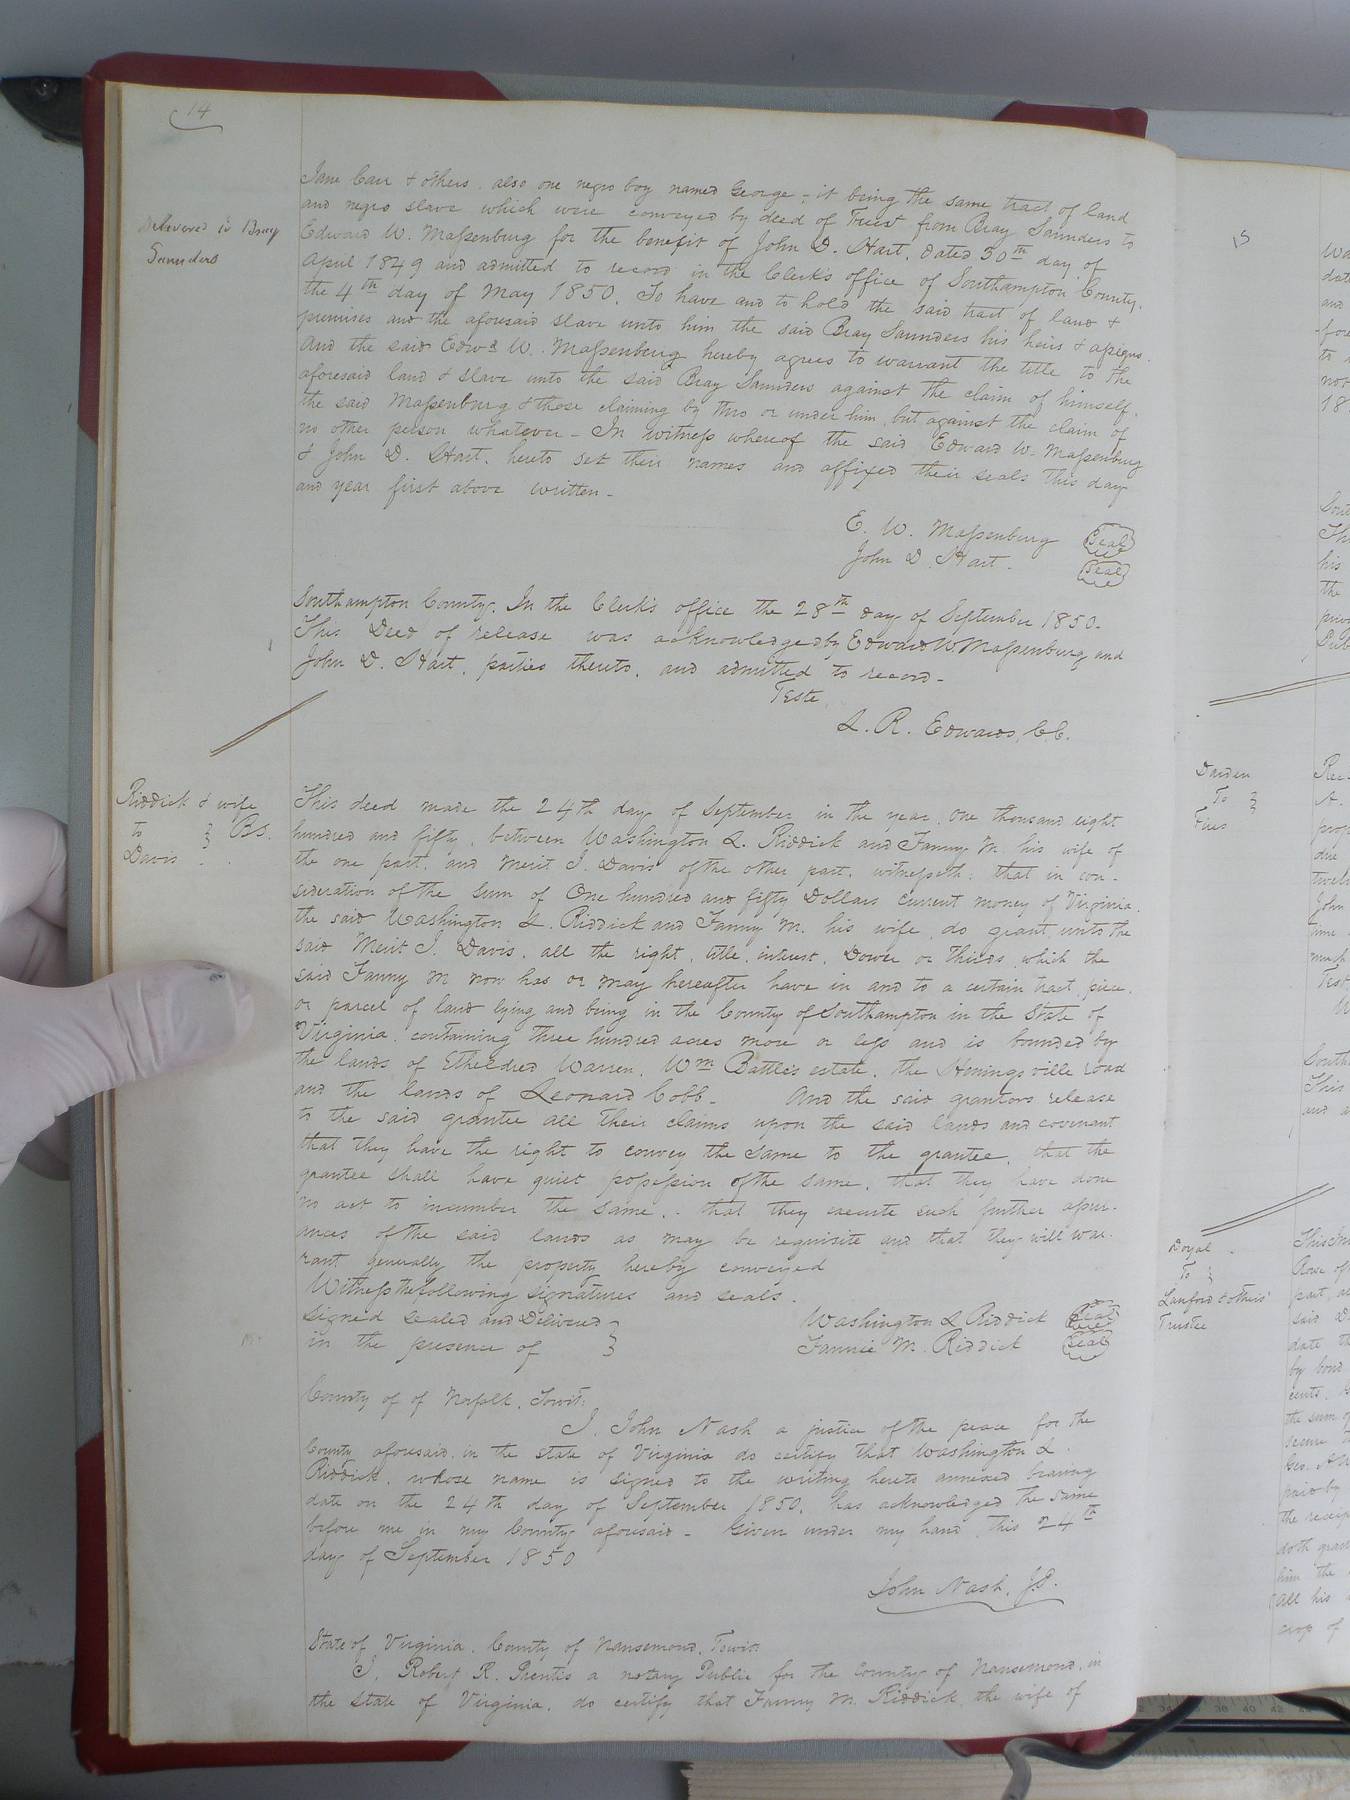 14
Jane Carr & others, also one negro boy named George; it being the same tract of land
and negro slave which were conveyed by deed of Trust from Bray Saunders to
Delivered to Bray
Saunders
Edward W. Maſsenburg for the benefit of John D. Hart, dated 30th day of
April 1849 and admitted to record in the Clerk's office of Southampton County,
the 4th day of May 1850. To have and to hold the said tract of land &
premises and the aforesaid slave unto him the said Bray Saunders his heirs & aſsigns.
And the said Edwd W. Maſsenburg hereby agrees to warrant the title to the
aforesaid land & slave unto the said Bray Saunders against the claim of himself,
the said Maſsenburg & those claiming by thro or under him, but against the claim of
no other person whatever - In witneſs whereof the said Edward W. Maſsenburg
& John D. Hart, hereto set their names and affixed their seals this day
and year first above written -
E. W. Maſsenburg Seal
John D. Hart. Seal
Southampton County. In the Clerk's office the 28th day of September 1850.
This Deed of release was acknowledged by Edward W Maſsenburg and
John D. Hart, parties thereto, and admitted to record -
Teste,
L. R. Edwards, C.C.
Riddick & wife
to } B.S.
Davis
This deed made the 24th day of September in the year one thousand eight
hundred and fifty, between Washington L. Riddick and Fanny M. his wife of
the one part, and Merit I. Davis of the other part, witneſseth: that in con-
sideration of the sum of One hundred and fifty Dollars current money of Virginia,
the said Washington L. Riddick and Fanny M. his wife, do grant unto the
said Merit I. Davis, all the right, title, interest, Dower or Thirds, which the
said Fanny M now has or may hereafter have in and to a certain tract, piece,
or parcel of land lying and being in the County of Southampton in the State of
Virginia, containing three hundred acres more or leſs and is bounded by
the lands of Etheldred Warren, Wm Battle's estate, the Honingsville road
and the lands of Leonard Cobb - And the said grantors release
to the said grantee all their claims upon the said lands and covenant
that they have the right to convey the same to the grantee, that the
grantee shall have quiet poſseſsion of the same, that they have done
no act to incumber the same, - that they execute such further aſsur-
ances of the said lands as may be requisite and that they will war-
rant generally the property hereby conveyed
Witneſs the following signatures and seals.
Signed Sealed and Delivered }
in the presence of }
Washington L Riddick Seal
Fannie M. Riddick Seal
County of of Norfolk, Towit:
I, John Nash a justice of the peace for the
County aforesaid, in the state of Virginia do certify that Washington L.
Riddick, whose name is signed to the writing hereto annexed bearing
date on the 24th day of September 1850, has acknowledged the same
before me in my County aforesaid - Given under my hand this 24th
day of September 1850
John Nash, J.P.
State of Virginia, County of Nansemond, Towit:
I, Robert R. Prentis a notary Public for the County of Nansemond, in
the state of Virginia, do certify that Fanny M. Riddick, the wife of
15
Darden
To }
Doyal
To }
Lanford & others
Trustee